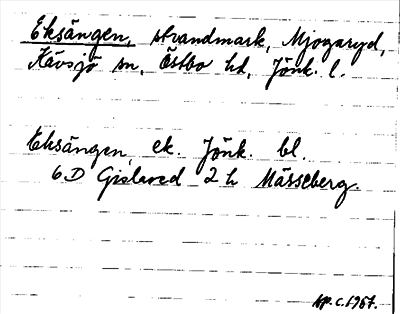 Eksängen, strandmark, Mjogaryd,
Kävsjö sn, Östbo hd, Jönk. l.
Eksängen, ek. Jönk. bl.
6D Gislaved 2h Mässeberg.
op. c. 1967.